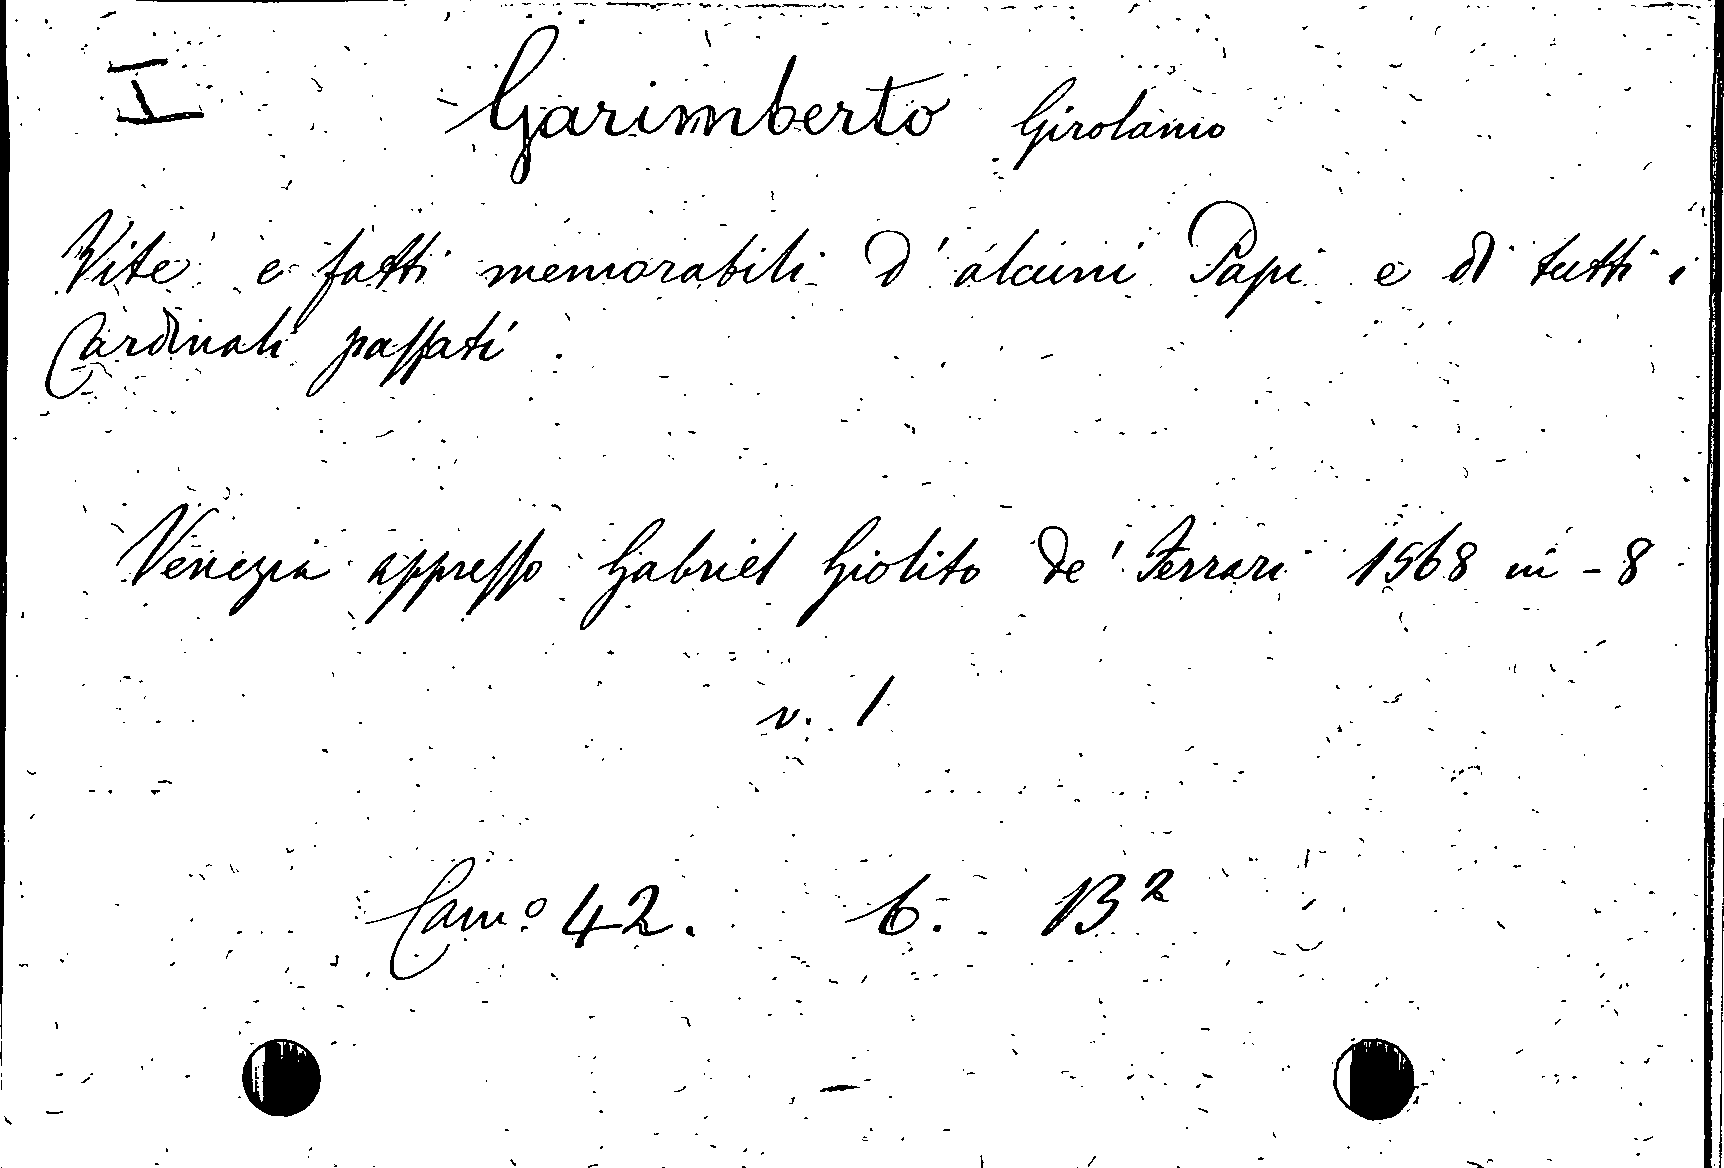 I Garimberto Girolamo
Vite e fatti memorabili d'alcuni Papi e di tutti i
Cardinali passati
Venezia appresso Gabriel Giolito de' Ferrari 1568 in - 8
v. 1
Cam.o 42. 6. B2